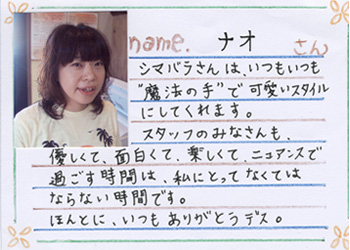 name. ナオ さん
シマバラさんは、いつもいつも
"魔法の手"で可愛いスタイル
にしてくれます。
スタッフのみなさんも、
優しくて、面白くて、楽しくて、ニュアンスで
過ごす時間は、私にとってなくては
ならない時間です。
ほんとに、いつもありがとうデス。